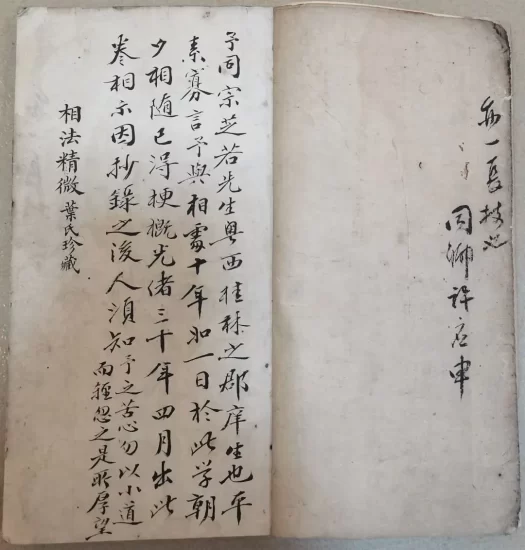 亦一長技也
同鄉許应申
予同宗芝若先生粵西桂林之郡庠生也平
素寡言予與相處十年如一日於此学朝
夕相随已得梗概光绪三十年四月出此
卷相示因抄錄之後人須知予之苦心勿以小道
而輕忽之是所厚望
相法精微 葉氏珍藏